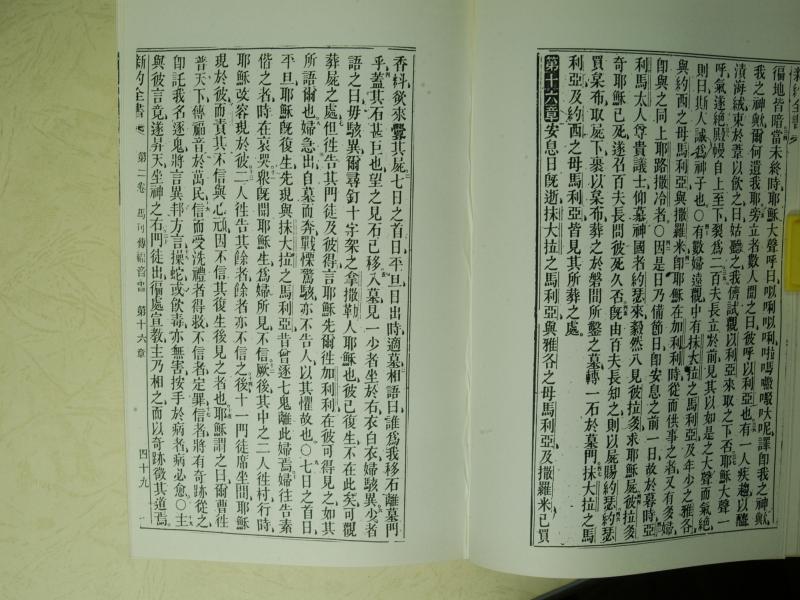 徧地皆暗當未終時耶穌大聲呼曰以唎以唎啦嗎大呢譯卽我之神歟
我之神歟爾何遺我耶旁立者數人聞之曰彼呼以利亞也有一人疾趨以醮
漬海絨束於葦以飲之曰姑聽之我儕試觀以利亞來取之下否耶穌大聲一
呼氣遂絕殿幔自上至下裂爲二百夫長立於前見其以如是之大聲而氣絕
則曰斯人誠爲神子也〇有數婦遠觀中有抹大拉之馬利亞及年少之雅各
與約西之母馬利亞與撒羅米卽耶穌在加利利時從而供事之者又有多婦
卽與之同上耶路撒冷者〇因是日乃備節日卽安息之前一日故於暮時亞
利馬太人尊貴議士仰慕神國者約瑟來毅然入見彼拉多求耶穌屍彼拉多
奇耶穌已死遂召百夫長問彼死久否旣由百夫長知之則以屍賜約瑟約瑟
買枲布取屍下裹以枲布葬之於磐間所鑿之墓轉一石於墓門抹大拉之馬
利亞及約西之母馬利亞皆見其所葬之處
第十六章安息日旣逝抹大拉之馬利亞與雅各之母馬利亞及撒羅米已買
香料欲來膏其屍七日之首日平旦日出時適墓相語曰誰爲我移石離墓門
乎蓋其石甚巨也望之見石已移入墓見一少者坐於右衣白衣婦駭異少者
語之曰毋駭異爾尋釘十字架之拿撒勒人耶穌也彼已復生不在此矣可觀
葬屍之處但往告其門徒及彼得言耶穌先爾往加利利在彼可得見之如其
所語爾也婦急出自墓而奔戰慄驚駭亦不告人以其懼故也〇七日之首日
平旦耶穌旣復生先現與抹大拉之馬利亞昔曾逐七鬼離此婦焉婦往告素
偕之者時在哀哭衆旣聞耶穌生爲婦所見不信厥後其中之二人往村行時
耶穌改容現於彼二人往告其餘者餘者亦不信之後十一門徒席坐間耶穌
現於彼而責其不信與心頑因不信其復生後見之者也耶穌謂之曰爾曹往
普天下傳福音於萬民信而受洗禮者得救不信者定罪信者將有奇跡從之
卽託我名逐鬼將言異邦方言操蛇或飲毒亦無害按手於病者病必愈〇主
與彼言竟遂昇天坐神之右門徒出徧處宣敎主乃相之而以奇跡徵其道焉
新約全書 第二卷 馬可傳福音書 第十六章 四十九